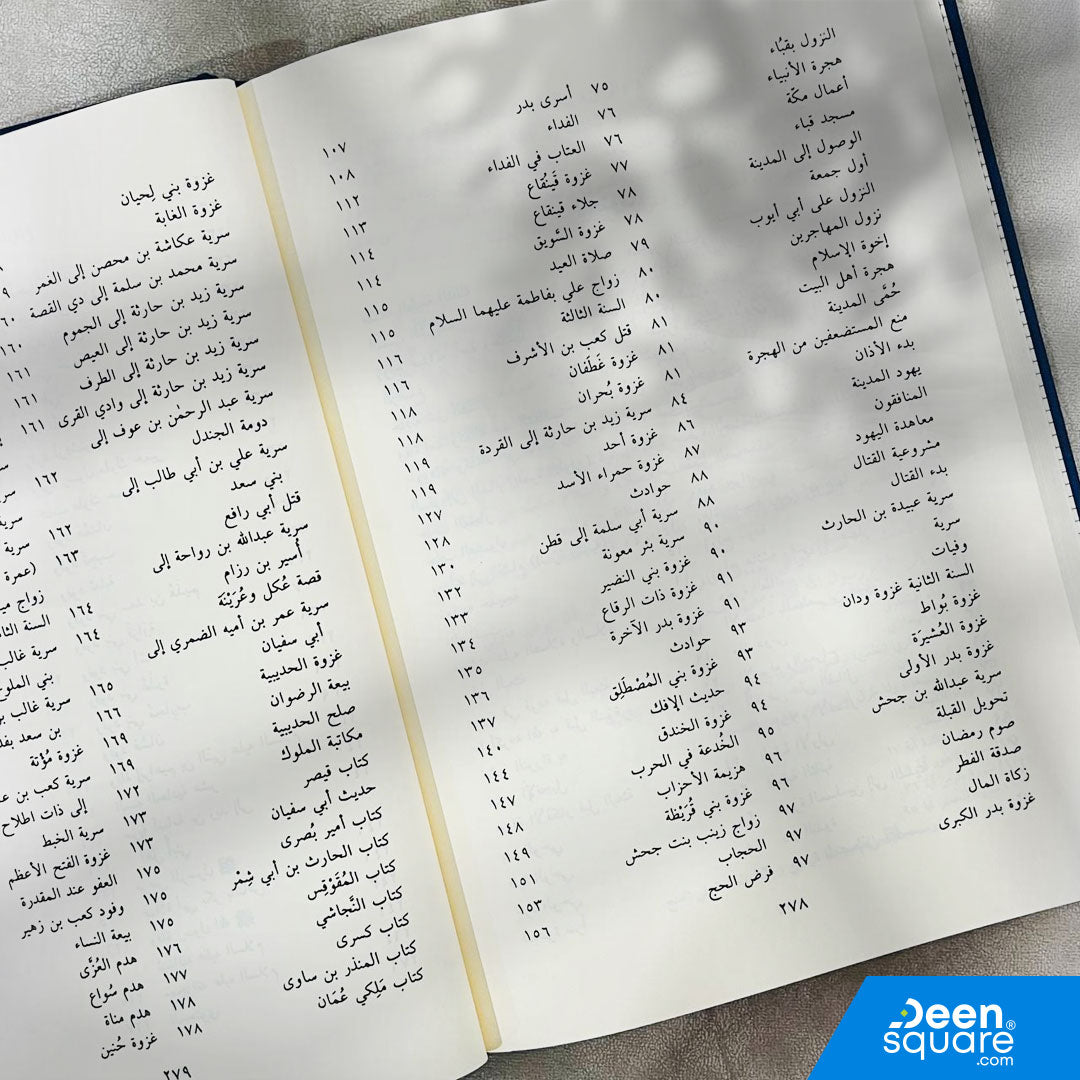 النزول بقبُاء ٧٥
هجرة الأنبياء ٧٦
أعمال مكّة ٧٦
مسجد قباء ٧٧
الوصول إلى المدينة ٧٨
أول جمعة ٧٨
النزول على أبي أيوب ٧٩
نزول المهاجرين ٨٠
إخوة الإسلام ٨٠
هجرة أهل البيت ٨١
حُمَّى المدينة ٨١
منع المستضعفين من الهجرة ٨١
بدء الأذان ٨٤
يهود المدينة ٨٦
المنافقون ٨٧
معاهدة اليهود ٨٨
مشروعية القتال ٨٨
بدء القتال ٩٠
سرية عبيدة بن الحارث ٩٠
سرية ٩١
وفيات ٩١
السنة الثانية غزوة ودان ٩٣
غزوة بُواط ٩٣
غزوة العُشيرَة ٩٤
غزوة بدر الأولى ٩٤
سرية عبدالله بن جحش ٩٥
تحويل القبلة ٩٦
صوم رمضان ٩٦
صدقة الفطر ٩٧
زكاة المال ٩٧
غزوة بدر الكبرى ٩٧
أسرى بدر ١٠٧
الفداء ١٠٨
العتاب في الفداء ١١٢
غزوة قَينُقاع ١١٣
جلاء قينقاع ١١٤
غزوة السَّويق ١١٤
صلاة العيد ١١٥
زواج علي بفاطمة عليهما السلام ١١٥
السنة الثالثة ١١٦
قتل كعب بن الأشرف ١١٦
غزوة غَطَفَان ١١٨
غزوة بُحران ١١٨
سرية زيد بن حارثة إلى القردة ١١٩
غزوة أحد ١١٩
غزوة حمراء الأسد ١٢٧
حوادث ١٢٨
سرية أبي سلمة إلى قطن ١٣٠
سرية بئر معونة ١٣٢
غزوة بني النضير ١٣٣
غزوة ذات الرقاع ١٣٤
غزوة بدر الآخرة ١٣٥
حوادث ١٣٦
غزوة بني المُصْطَلِق ١٣٧
حديث الإفك ١٤٠
غزوة الخندق ١٤٤
الخُدعة في الحرب ١٤٧
هزيمة الأحزاب ١٤٨
غزوة بني قُرَيْظة ١٤٩
زواج زينب بنت جحش ١٥١
الحجاب ١٥٣
فرض الحج ١٥٦
٢٧٨
غزوة بني لِحيان
غزوة الغابة
سرية عكاشة بن محصن إلى الغمر
سرية محمد بن سلمة إلى دي القصة
سرية زيد بن حارثة إلى الجموم ١٦٠
سرية زيد بن حارثة إلى العيص ١٦١
سرية زيد بن حارثة إلى الطرف ١٦١
سرية زيد بن حارثة إلى وادي القرى ١٦١
سرية عبد الرحمٰن بن عوف إلى
دومة الجندل ١٦٢
سرية علي بن أبي طالب إلى
بني سعد ١٦٢
قتل أبي رافع ١٦٣
سرية عبدالله بن رواحة إلى
أُسير بن رزام ١٦٤
قصة عُكل وعُرَيْنَة ١٦٤
سرية عمر بن أميه الضمري إلى
أبي سفيان ١٦٥
غزوة الحديبية ١٦٦
بيعة الرضوان ١٦٩
صلح الحديبية ١٦٩
مكاتبة الملوك ١٧٢
كتاب قيصر ١٧٣
حديث أبي سفيان ١٧٣
كتاب أمير بُصرى ١٧٥
كتاب الحارث بن أبي شِمْر ١٧٥
كتاب المُقَوْقِس ١٧٥
كتاب النَّجاشي ١٧٦
كتاب كسرى ١٧٧
كتاب المنذر بن ساوى ١٧٨
كتاب مَلِكي عُمَان ١٧٨
(عمرة
زواج
السنة
سرية غالب
بني
سرية غالب
بن سعد
غزوة مُؤْتة
سرية كعب بن
إلى ذات اطلاح
سرية الخبط
غزوة الفتح الأعظم
العفو عند المقدرة
وفود كعب بن زهير
بيعة النساء
هدم العُزَّى
هدم سُواع
هدم مناة
غزوة حُنين
٢٧٩
Deen
square®
.com